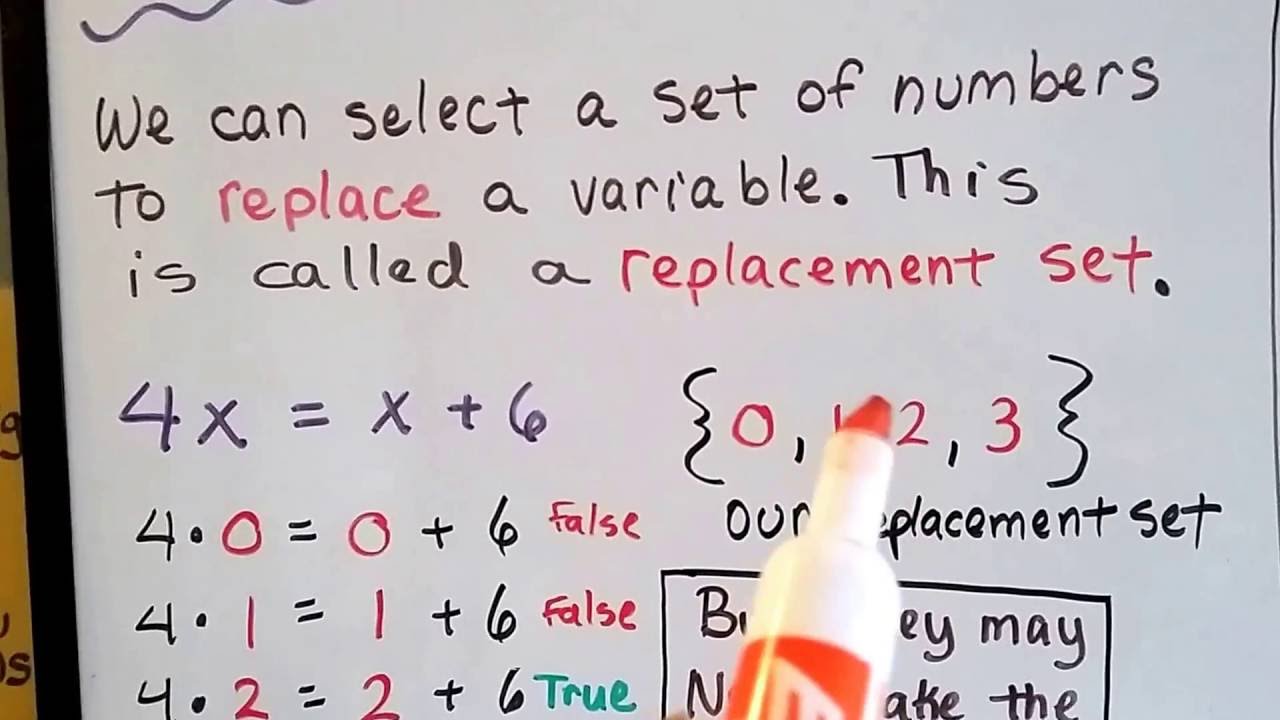 We can select a set of numbers
to replace a variable. This
is called a replacement set.
4x = x + 6
{0, 1 2, 3}
our replacement set
4·0 = 0 + 6 False
4·1 = 1 + 6 False
4·2 = 2 + 6 True
ey may
the